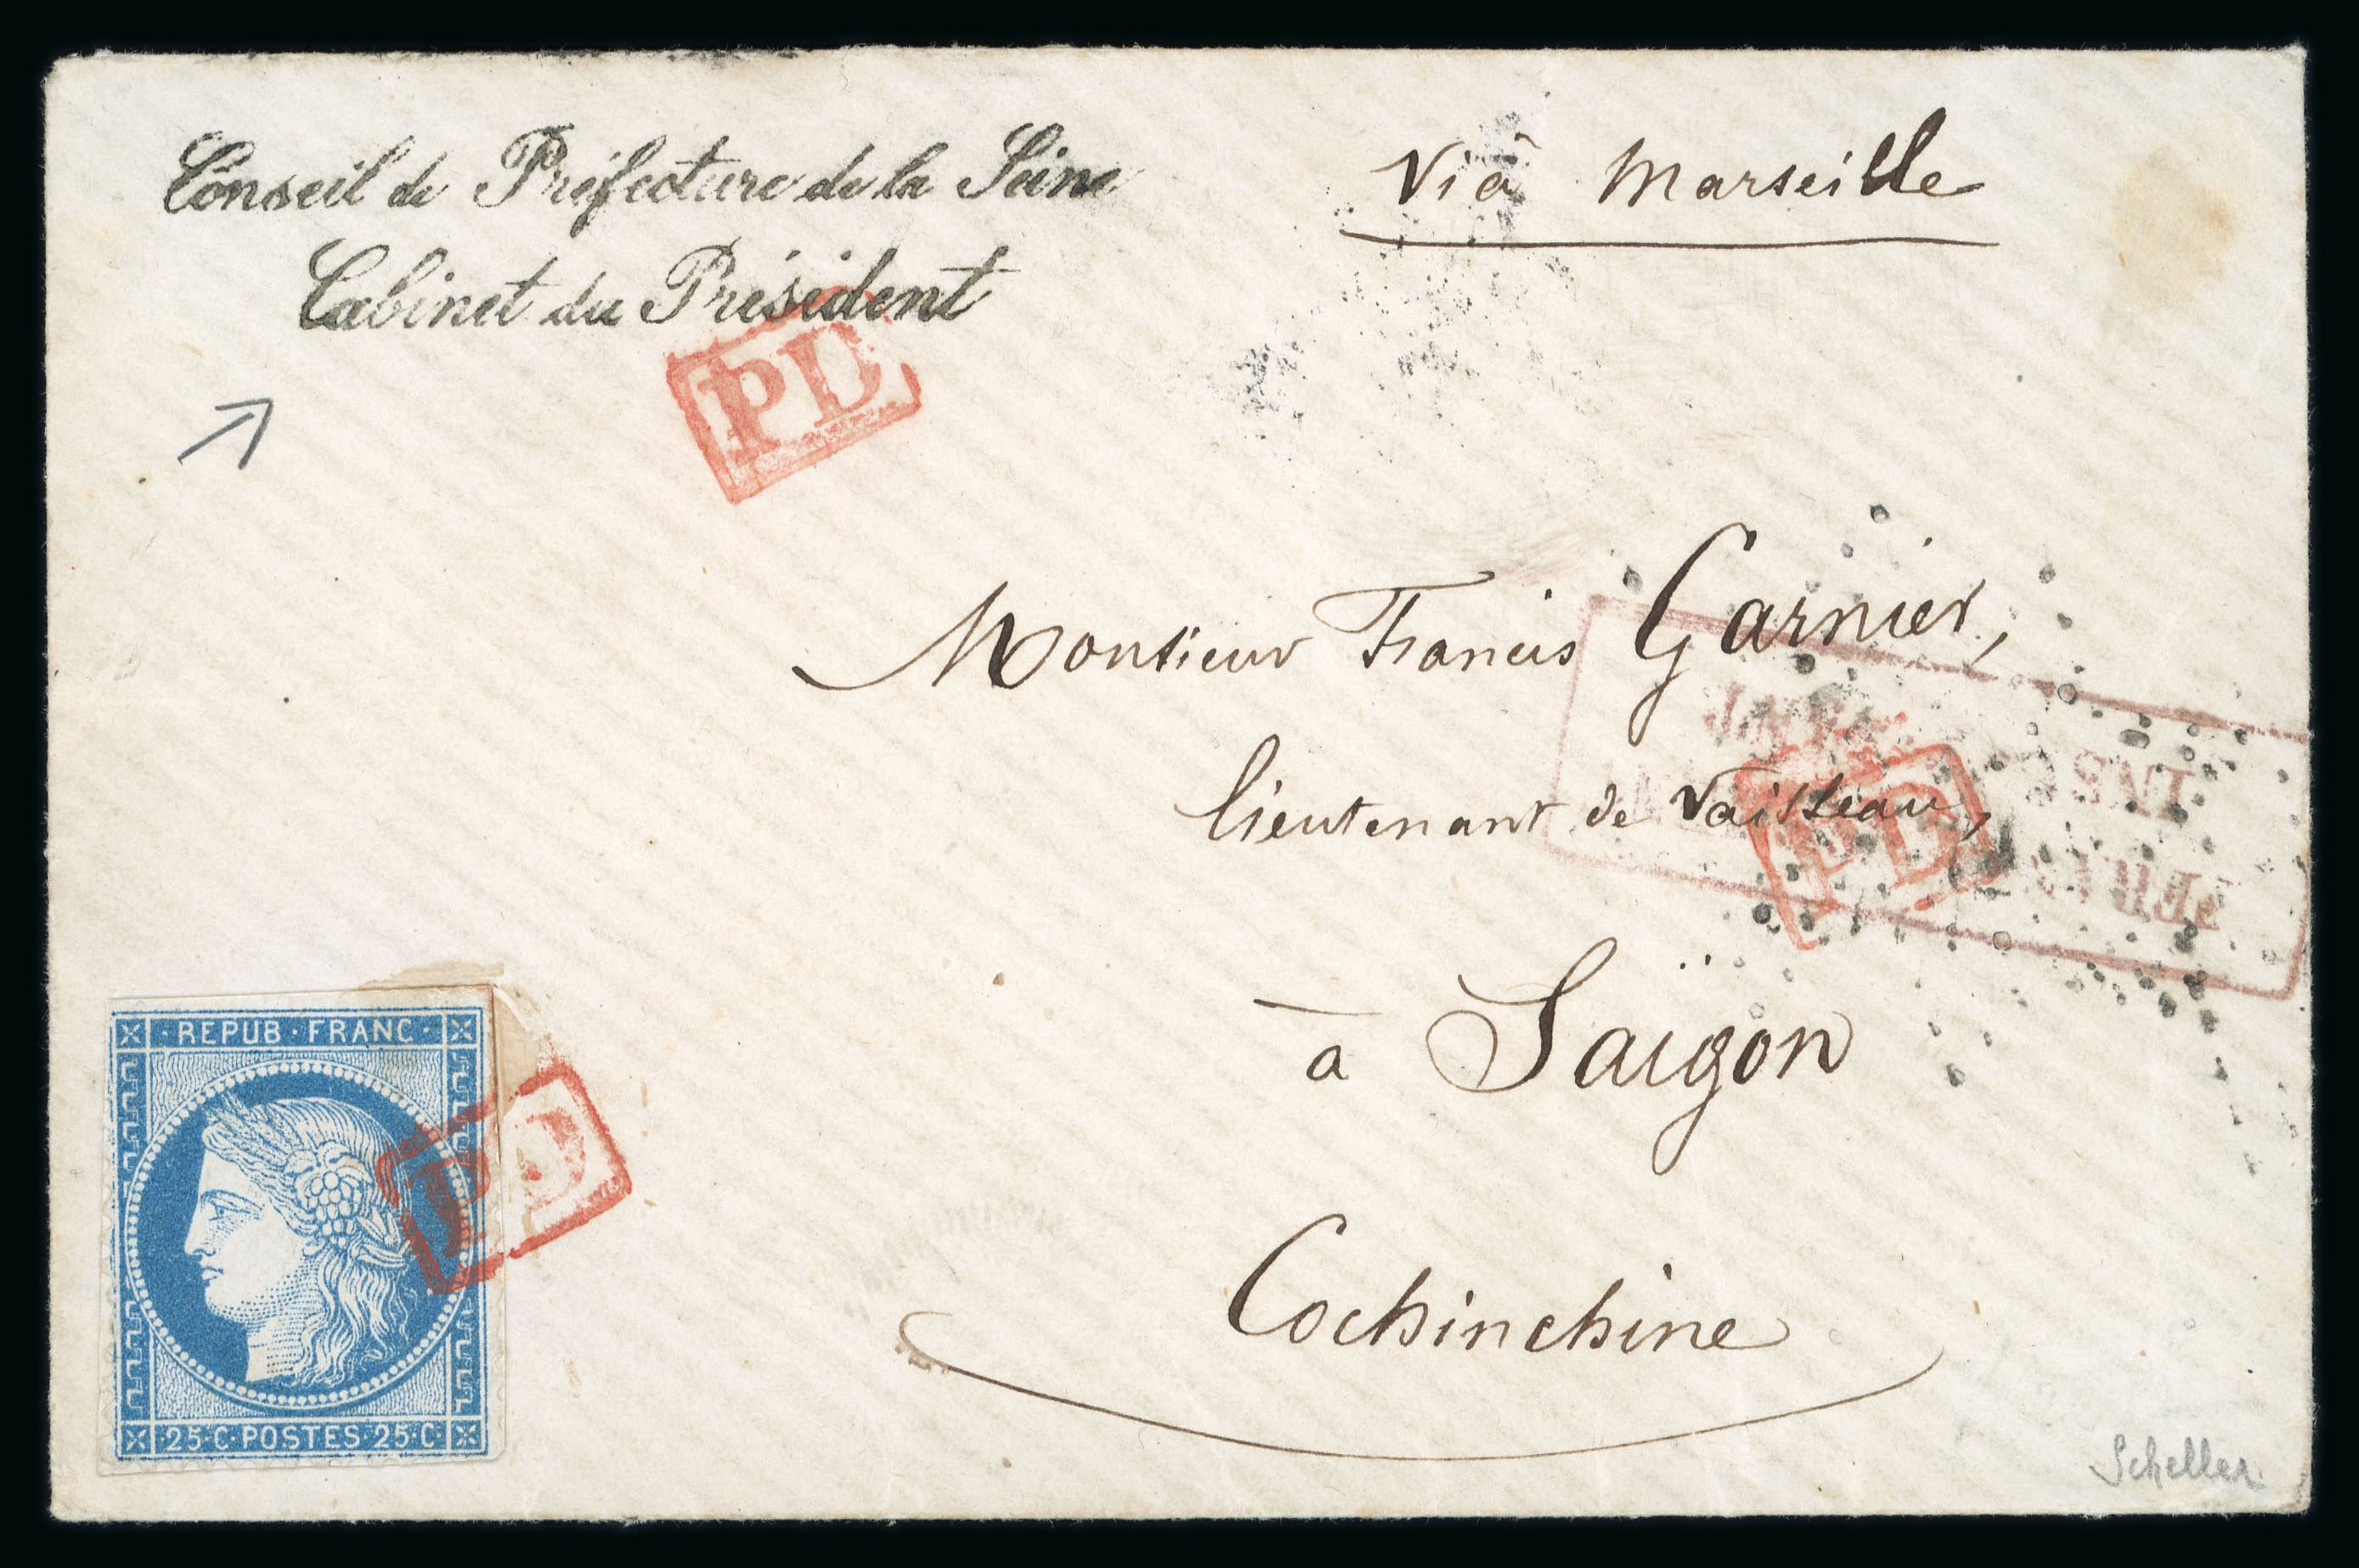 Conseil de Préfecture de la Seine
Cabinet du Président
Viâ Marseille
PD
Monsieur Francis Garnier,
lieutenant de Vaisseau,
PD
à Saïgon
Cochinchine
REPUB·FRANC·
PD
25·C·POSTES·25·C·
Scheller